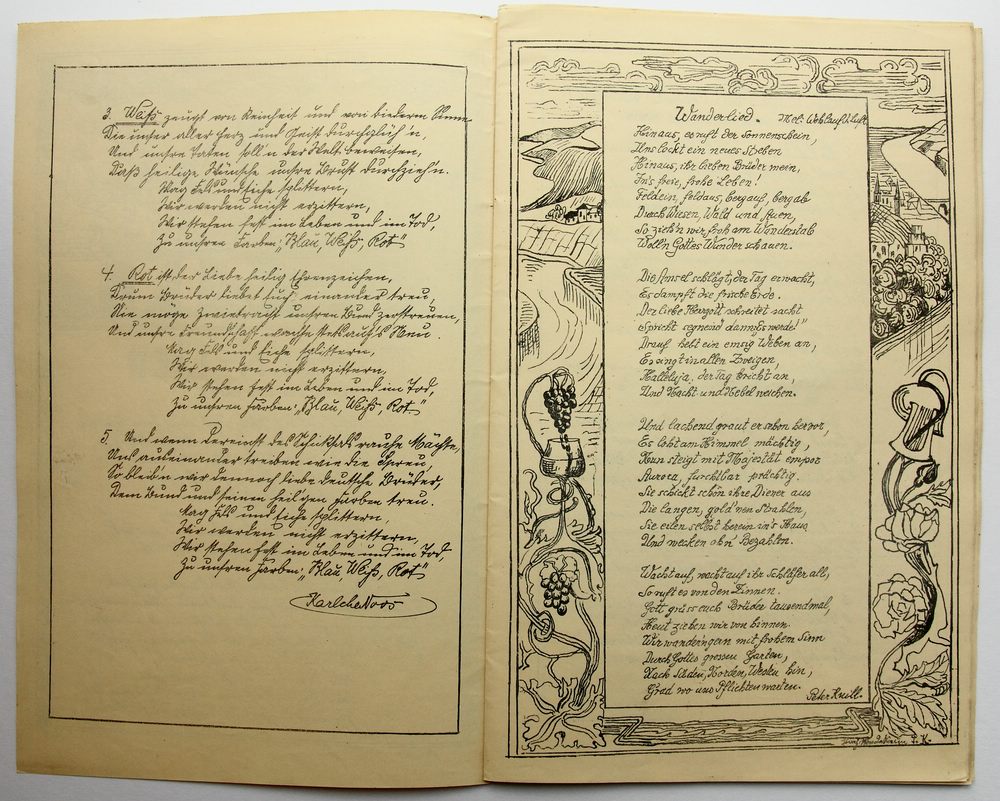 3. Weiß zeugt von Reinheit und von biederm Sinne
Die unser aller Herz und Geist durchglüh'n,
Und unsre Taten soll'n der Welt beweisen,
Daß heilige Wünsche unsre Brust durchzieh'n.
Mag Fels und Eiche splittern,
Wir werden nicht erzittern,
Wir stehen fest im Leben und im Tod,
Zu unsren Farben: „Blau, Weiß, Rot"
4. Rot ist der Liebe heilig Ehrenzeichen,
Drum Brüder liebet euch einander treu,
Nie möge Zwietracht unsren Bund zerstreuen,
Und unsre Freundschaft wachse stets aufs Neu.
Mag Fels und Eiche splittern,
Wir werden nicht erzittern,
Wir stehen fest im Leben und im Tod,
Zu unsren Farben: „Blau, Weiß, Rot"
5. Und wenn dereinst des Schicksals rauhe Mächte,
Uns auseinander treiben wie die Spreu,
So bleib'n wir dennoch liebe deutsche Brüder,
Dem Bund und seinen heil'gen Farben treu.
Mag Fels und Eiche splittern,
Wir werden nicht erzittern,
Wir stehen fest im Leben und im Tod,
Zu unsren Farben: „Blau, Weiß, Rot"
Karlche Noos
Wanderlied. Mel: Wohlauf d. Luft
Hinaus, es ruft der Sonnenschein,
Uns lockt ein neues Streben
Hinaus, ihr lieben Brüder mein,
In's freie, frohe Leben!
Feldein, feldaus, bergauf, bergab
Durch Wiesen, Wald und Auen,
So zieh'n wir froh am Wanderstab
Woll'n Gottes Wunder schauen.
Die Amsel schlägt, der Tag erwacht,
Es dampft die frische Erde.
Der liebe Herrgott schreitet sacht
Spricht segnend "dann es werde!"
Drauf hebt ein emsig Weben an,
Es singt in allen Zweigen,
Halleluja, der Tag bricht an,
Und Nacht und Nebel weichen.
Und lachend graut er schon hervor,
Es loht am Himmel mächtig
Nun steigt mit Majestät empor
Aurora, furchtbar prächtig.
Sie schickt schön ihre Diener aus
Die langen, gold'nen Strahlen,
Sie eilen selbst herein in's Haus
Und wecken ohn' Bezahlen.
Wacht auf, wacht auf ihr Schläfer all,
So ruft es von den Zinnen.
Gott grüss euch Brüder tausendmal,
Heut ziehen wir von hinnen.
Wir wandern gern mit frohem Sinn
Durch Gottes grossen Garten,
Nach Süden, Norden, Westen hin,
Grad wo uns Pflichten warten.
Peter Knill.